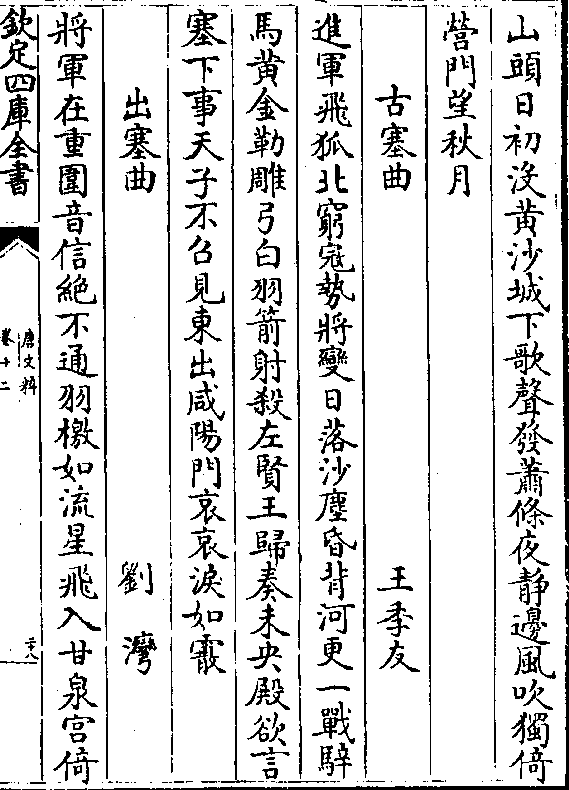 山頭日初没黄沙城下歌聲發蕭條夜静邊風吹獨倚
營門望秋月
古塞曲 王季友
進軍飛狐北窮寇勢將變日落沙塵昏背河更一戰騂
馬黄金勒雕弓白羽箭射殺左賢王歸奏未央殿欲言
塞下事天子不召見東出咸陽門哀哀淚如霰
出塞曲 劉灣
將軍在重圍音信絶不通羽檄如流星飛入甘泉宫倚
欽定四庫全書
唐文粹
卷十二
二十八